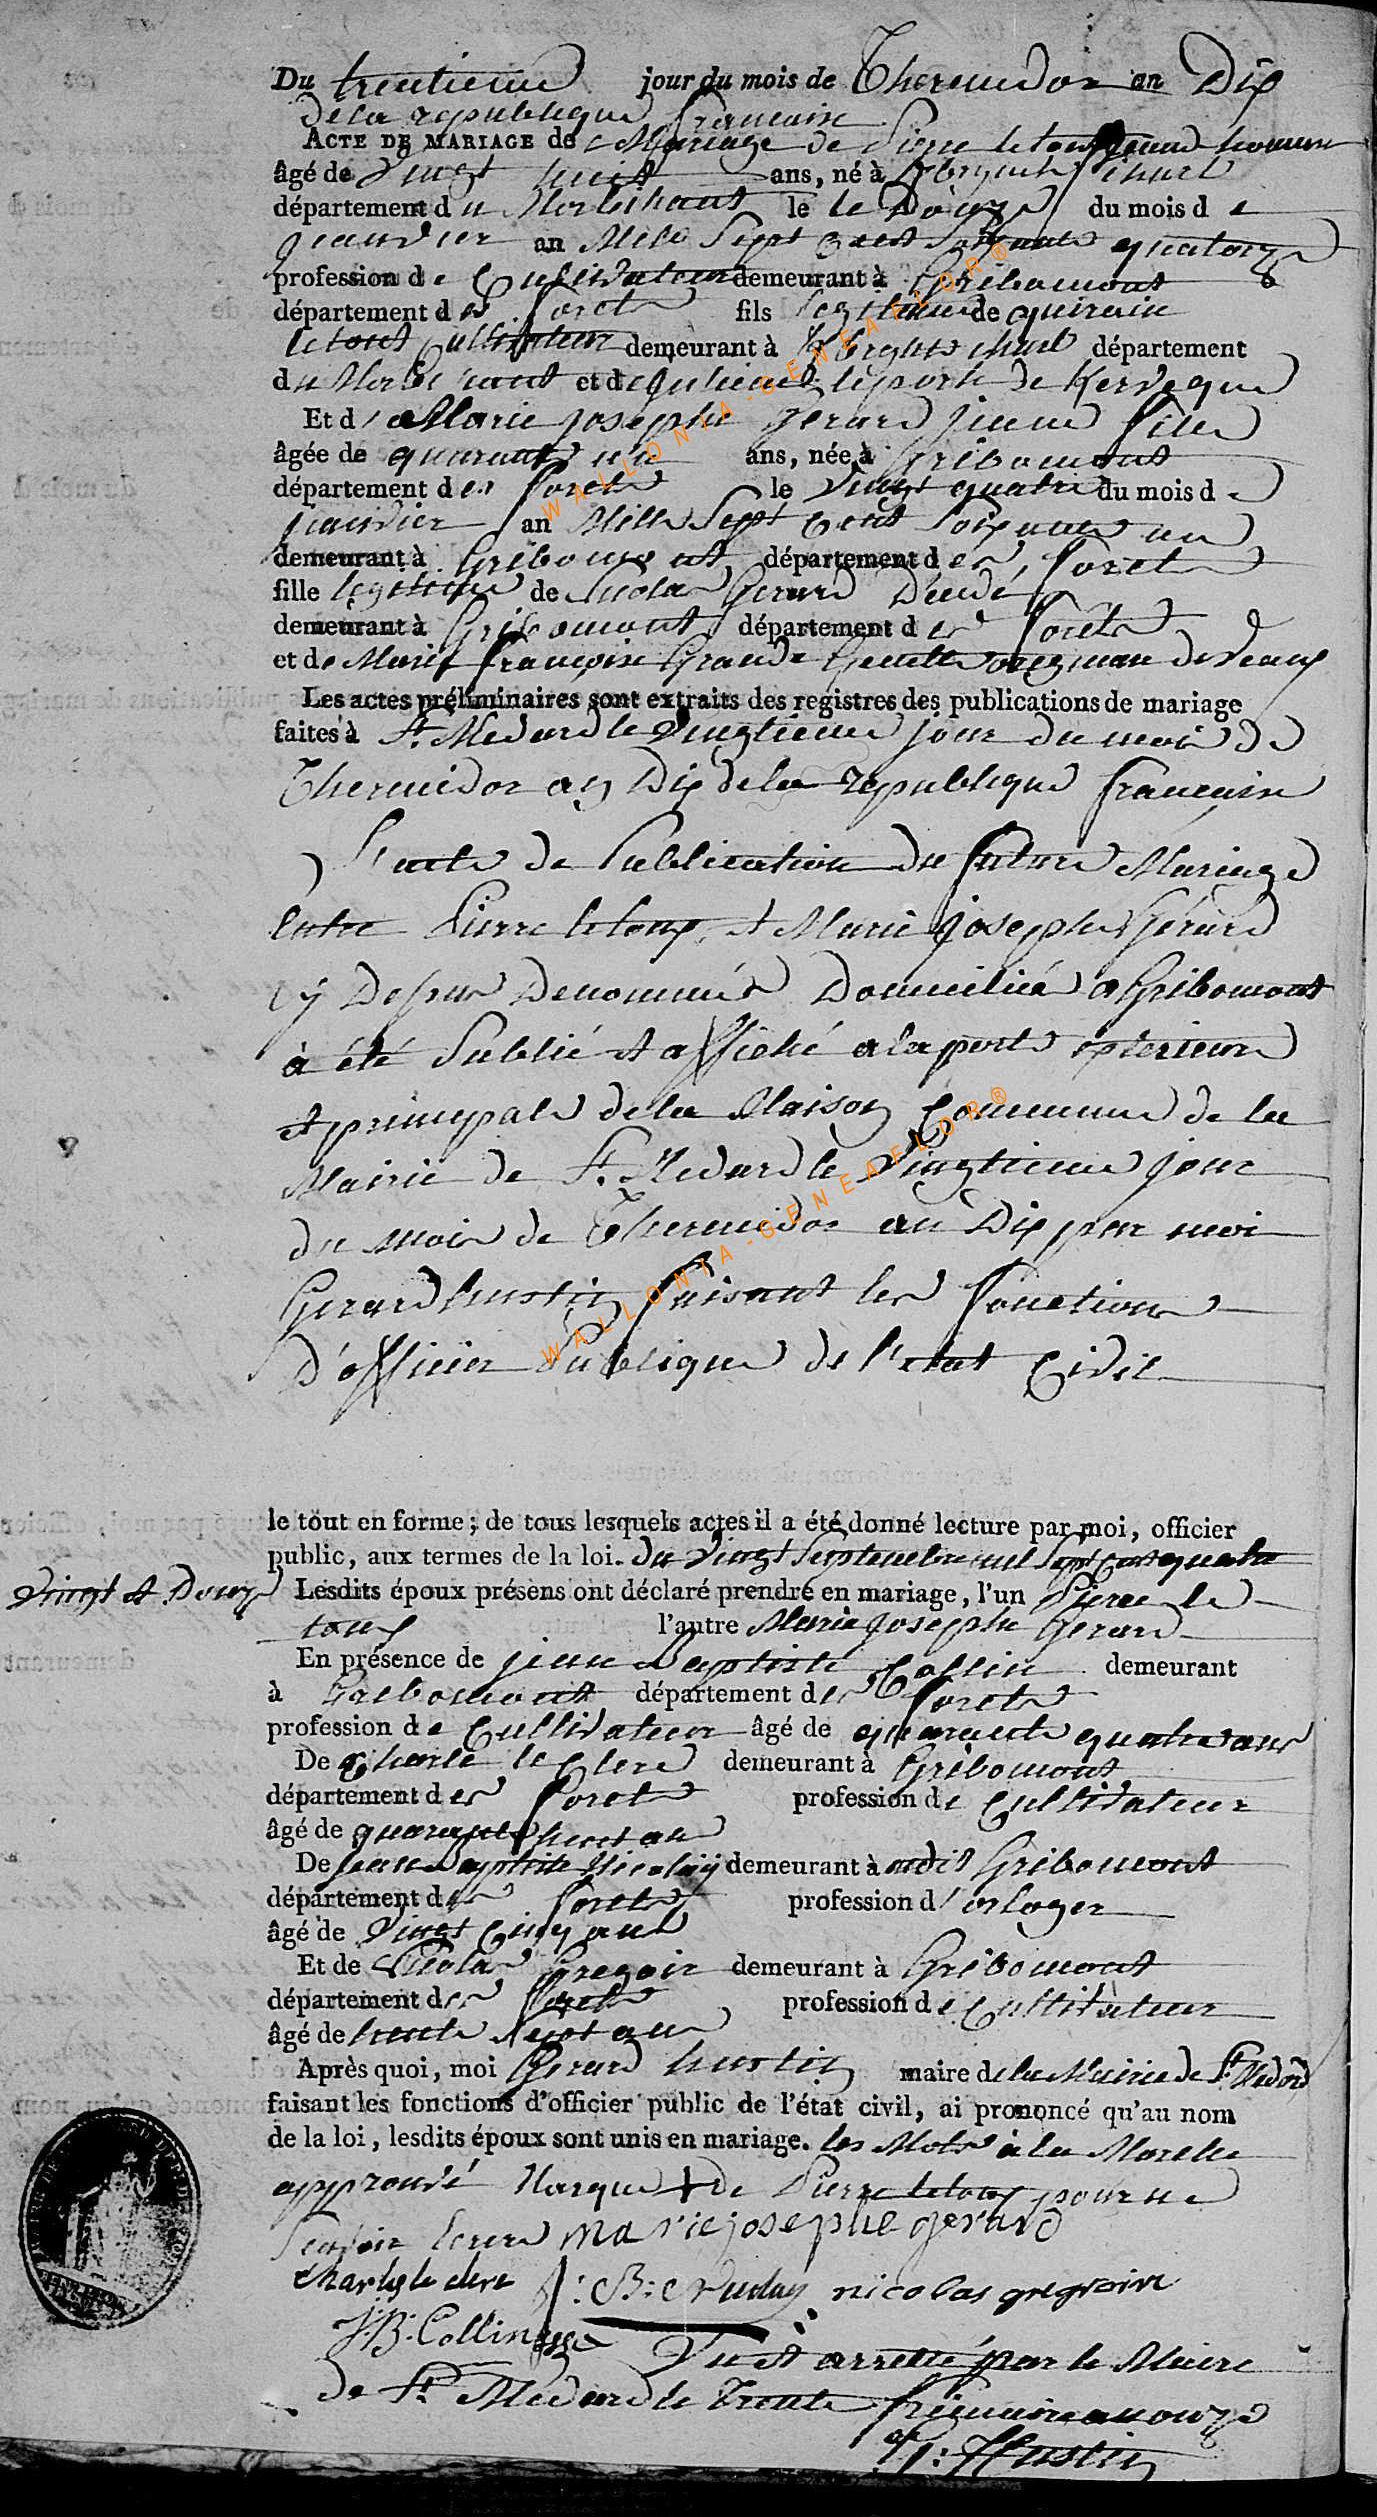 Du trentieme jour du mois de Thermidor an Dix
de la republique francaise
ACTE DE MARIAGE de Mariage de Pierre letoux jeune homme
âgé de vingt huit ans, né à
département du Morbihant le le Douze du mois de
janvier an Mile Sept Cent Soixante quatorze
profession de Cultivateur demeurant à Gribomont
département des foret fils legitime de quirain
letoux Cultivateur demeurant à département
du Morbihant et de julienne leporte de
Et de Marie josephe Gerard jeune fille
âgée de quarante un ans, née à Gribomont
département des foret le vingt quatre du mois de
janvier an Mille Sept Cent Soixante un
demeurant à Gribomont département des foret
fille legitime de Nicolas Gerard Décédé
demeurant à Gribomont département des forêts
et de Marie françoise Grande
Les actes préliminaires sont extraits des registres des publications de mariage
faites à St. Medard le vingtieme jour du mois de
Thermidor an Dix de la republique francaise
l'acte de Publication du future Mariage
Entre Pierre letoux et Marie josephe Gérard
cy Desus Denommés Domiciliée a Gribomont
à été Publié et affiché a la porte exterieure
et principale de la Maison Commune de la
Mairie de St. Medard le vingtieme jour
du mois de Thermidor an Dix par moi
Gerard hustin faisant les fonctions
D'officier Publique de l'etat Civil
le tout en forme ; de tous lesquels actes il a été donné lecture par moi, officier
public, aux termes de la loi. du vingt Septembre mil Sept Cent quatre
vingt et Douze
Lesdits époux présens ont déclaré prendre en mariage, l'un Pierre le
toux l'autre Marie josephe Gerard
En présence de jean Baptiste Collin demeurant
à Gribomont département des foret
profession de Cultivateur âgé de quarante quatre ans
De Charle le Clere demeurant à Gribomont
département des foret profession de Cultivateur
âgé de quarante huit an
De jean Baptiste Nicolay demeurant à audit Gribomont
département des foret profession d'orloger
âgé de vingt Cinq ans
Et de Nicolas Gregoir demeurant à Gribomont
département des foret profession de Cultivateur
âgé de trente Sept an
Après quoi, moi Gerard hustin maire de la Mairie de St Medard
faisant les fonctions d'officier public de l'état civil, ai prononcé qu'au nom
de la loi, lesdits époux sont unis en mariage. les Mots à la Marelle
approuvé Marque + de Pierre letoux pour ne
Savoir Ecrire marie josephe gerard
Charle le clere nicolas gregoire
J.B. Collin
Vu et arretté par le Maire
de St Medard le trente frimaire an onze
G: Hustin
WALLONIA-GENEAFLOR®
WALLONIA-GENEAFLOR®